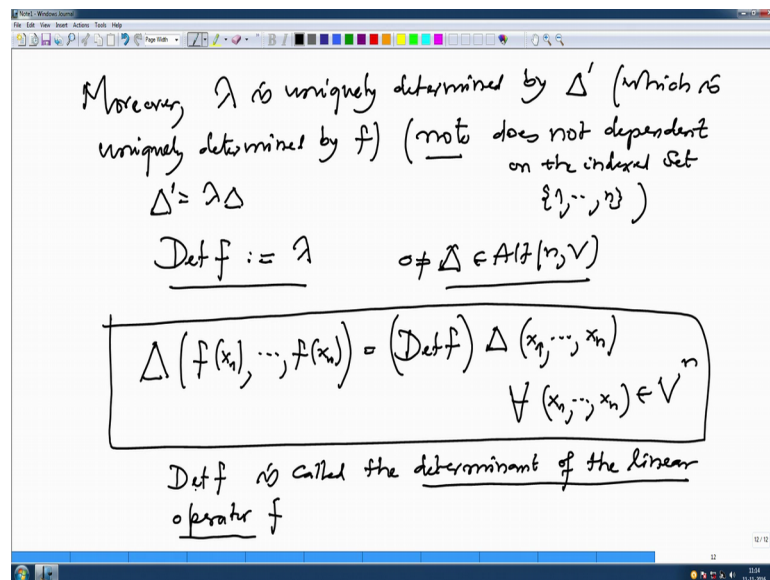 Note1 - Windows Journal
File Edit View Insert Actions Tools Help
Page Width
Moreover, λ is uniquely determined by Δ' (which is
uniquely determined by f) (note does not dependent
on the indexed set
Δ' = λΔ {1,..,n})
Det f := λ 0 ≠ Δ ∈ Alt(n,V)
Δ(f(x₁),..,f(xₙ)) = (Det f) Δ(x₁,..,xₙ)
∀ (x₁,..,xₙ) ∈ Vⁿ
Det f is called the determinant of the linear
operator f
12 / 12
12
11:14